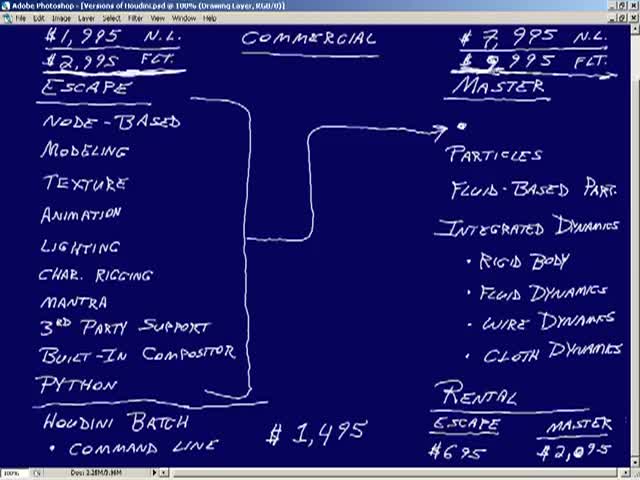 Adobe Photoshop - [Versions of Houdini.psd @ 100% (Drawing Layer, RGB/8)]
File Edit Image Layer Select Filter View Window Help
$1,995 N.L.
$2,995 FLT.
COMMERCIAL
$7,995 N.L.
$9,995 FLT.
ESCAPE
NODE-BASED
MODELING
TEXTURE
ANIMATION
LIGHTING
CHAR. RIGGING
MANTRA
3RD PARTY SUPPORT
BUILT-IN COMPOSITOR
PYTHON
HOUDINI BATCH
• COMMAND LINE
$1,495
MASTER
•
PARTICLES
FLUID-BASED PART.
INTEGRATED DYNAMICS
• RIGID BODY
• FLUID DYNAMICS
• WIRE DYNAMICS
• CLOTH DYNAMICS
RENTAL
ESCAPE MASTER
$695 $2,095
100%